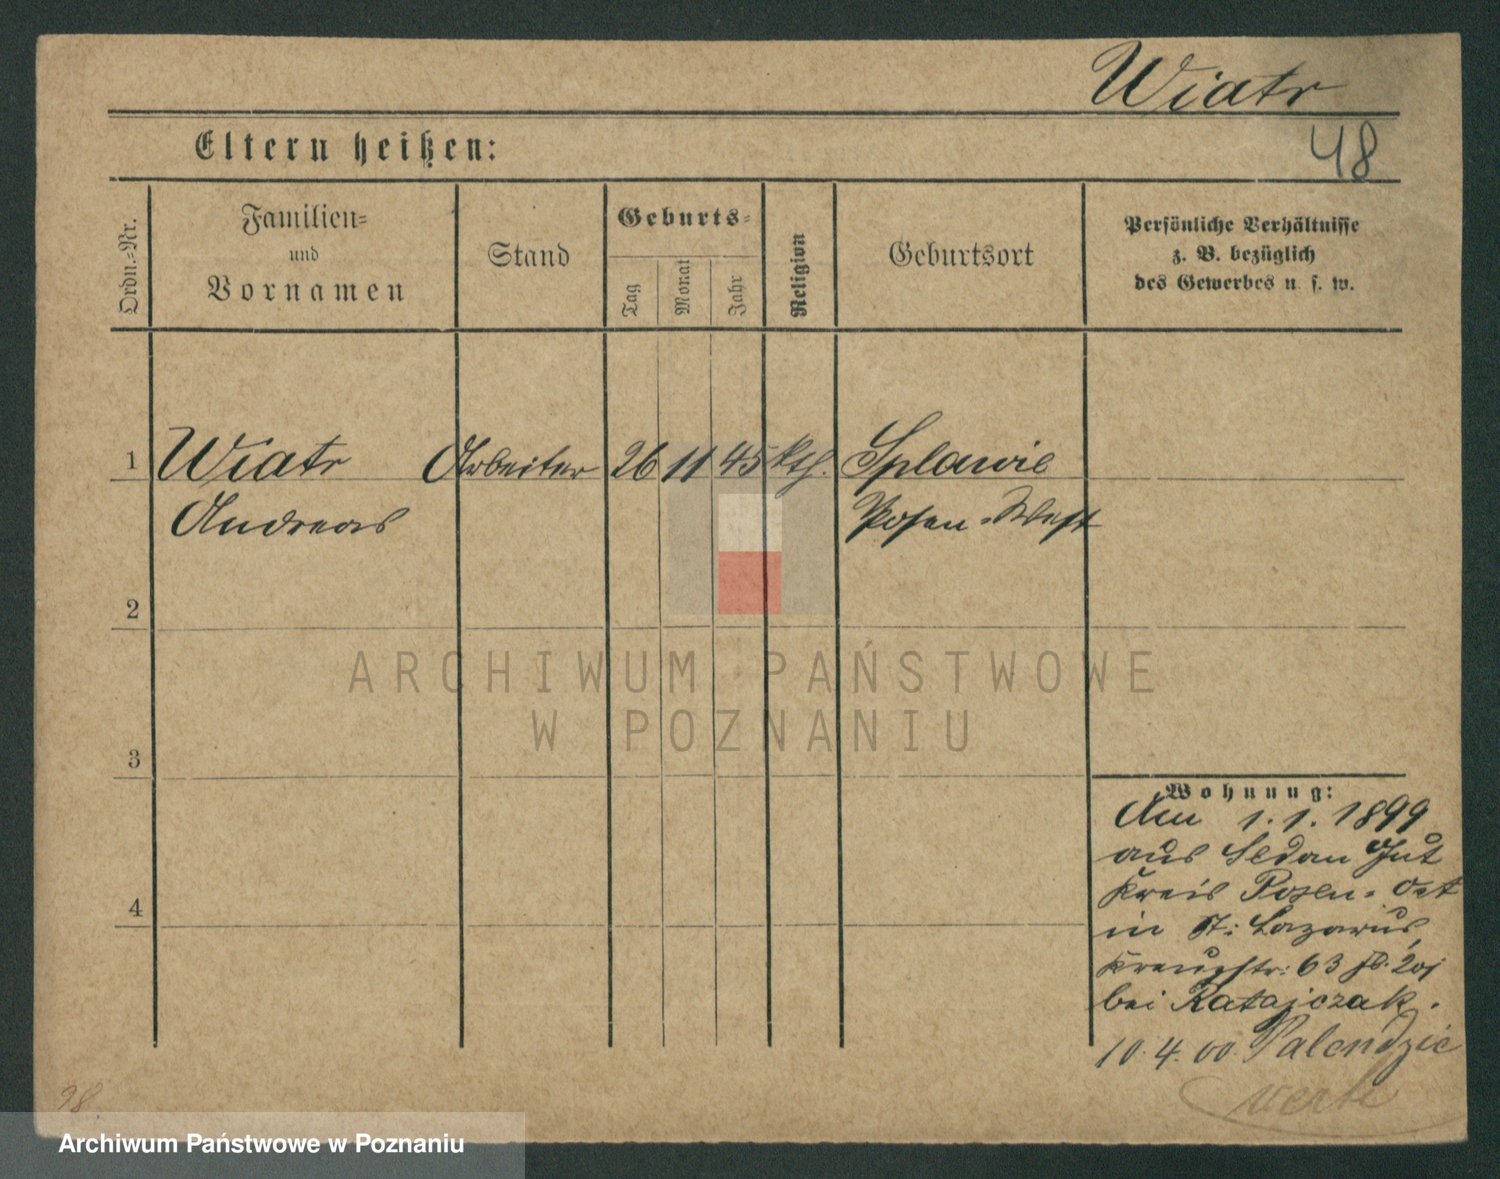 Wiatr
48
Eltern heißen:
Ordn.-Nr.
Familien-
und
Vornamen
Stand
Geburts-
Tag
Monat
Jahr
Religion
Geburtsort
Persönliche Verhältnisse
z. B. bezüglich
des Gewerbes u. s. w.
1 Wiatr Arbeiter 26 11 45 kth. Splawie
Andreas Posen-West
2
ARCHIWUM PAŃSTWOWE
W POZNANIU
3
4
Wohnung:
Am 1.1.1899
aus Sedan Gut
Kreis Posen-Ost
in St: Lazarus,
Kreuzstr: 63
bei Ratajczak.
10.4.00 Palendzie
98.
Archiwum Państwowe w Poznaniu